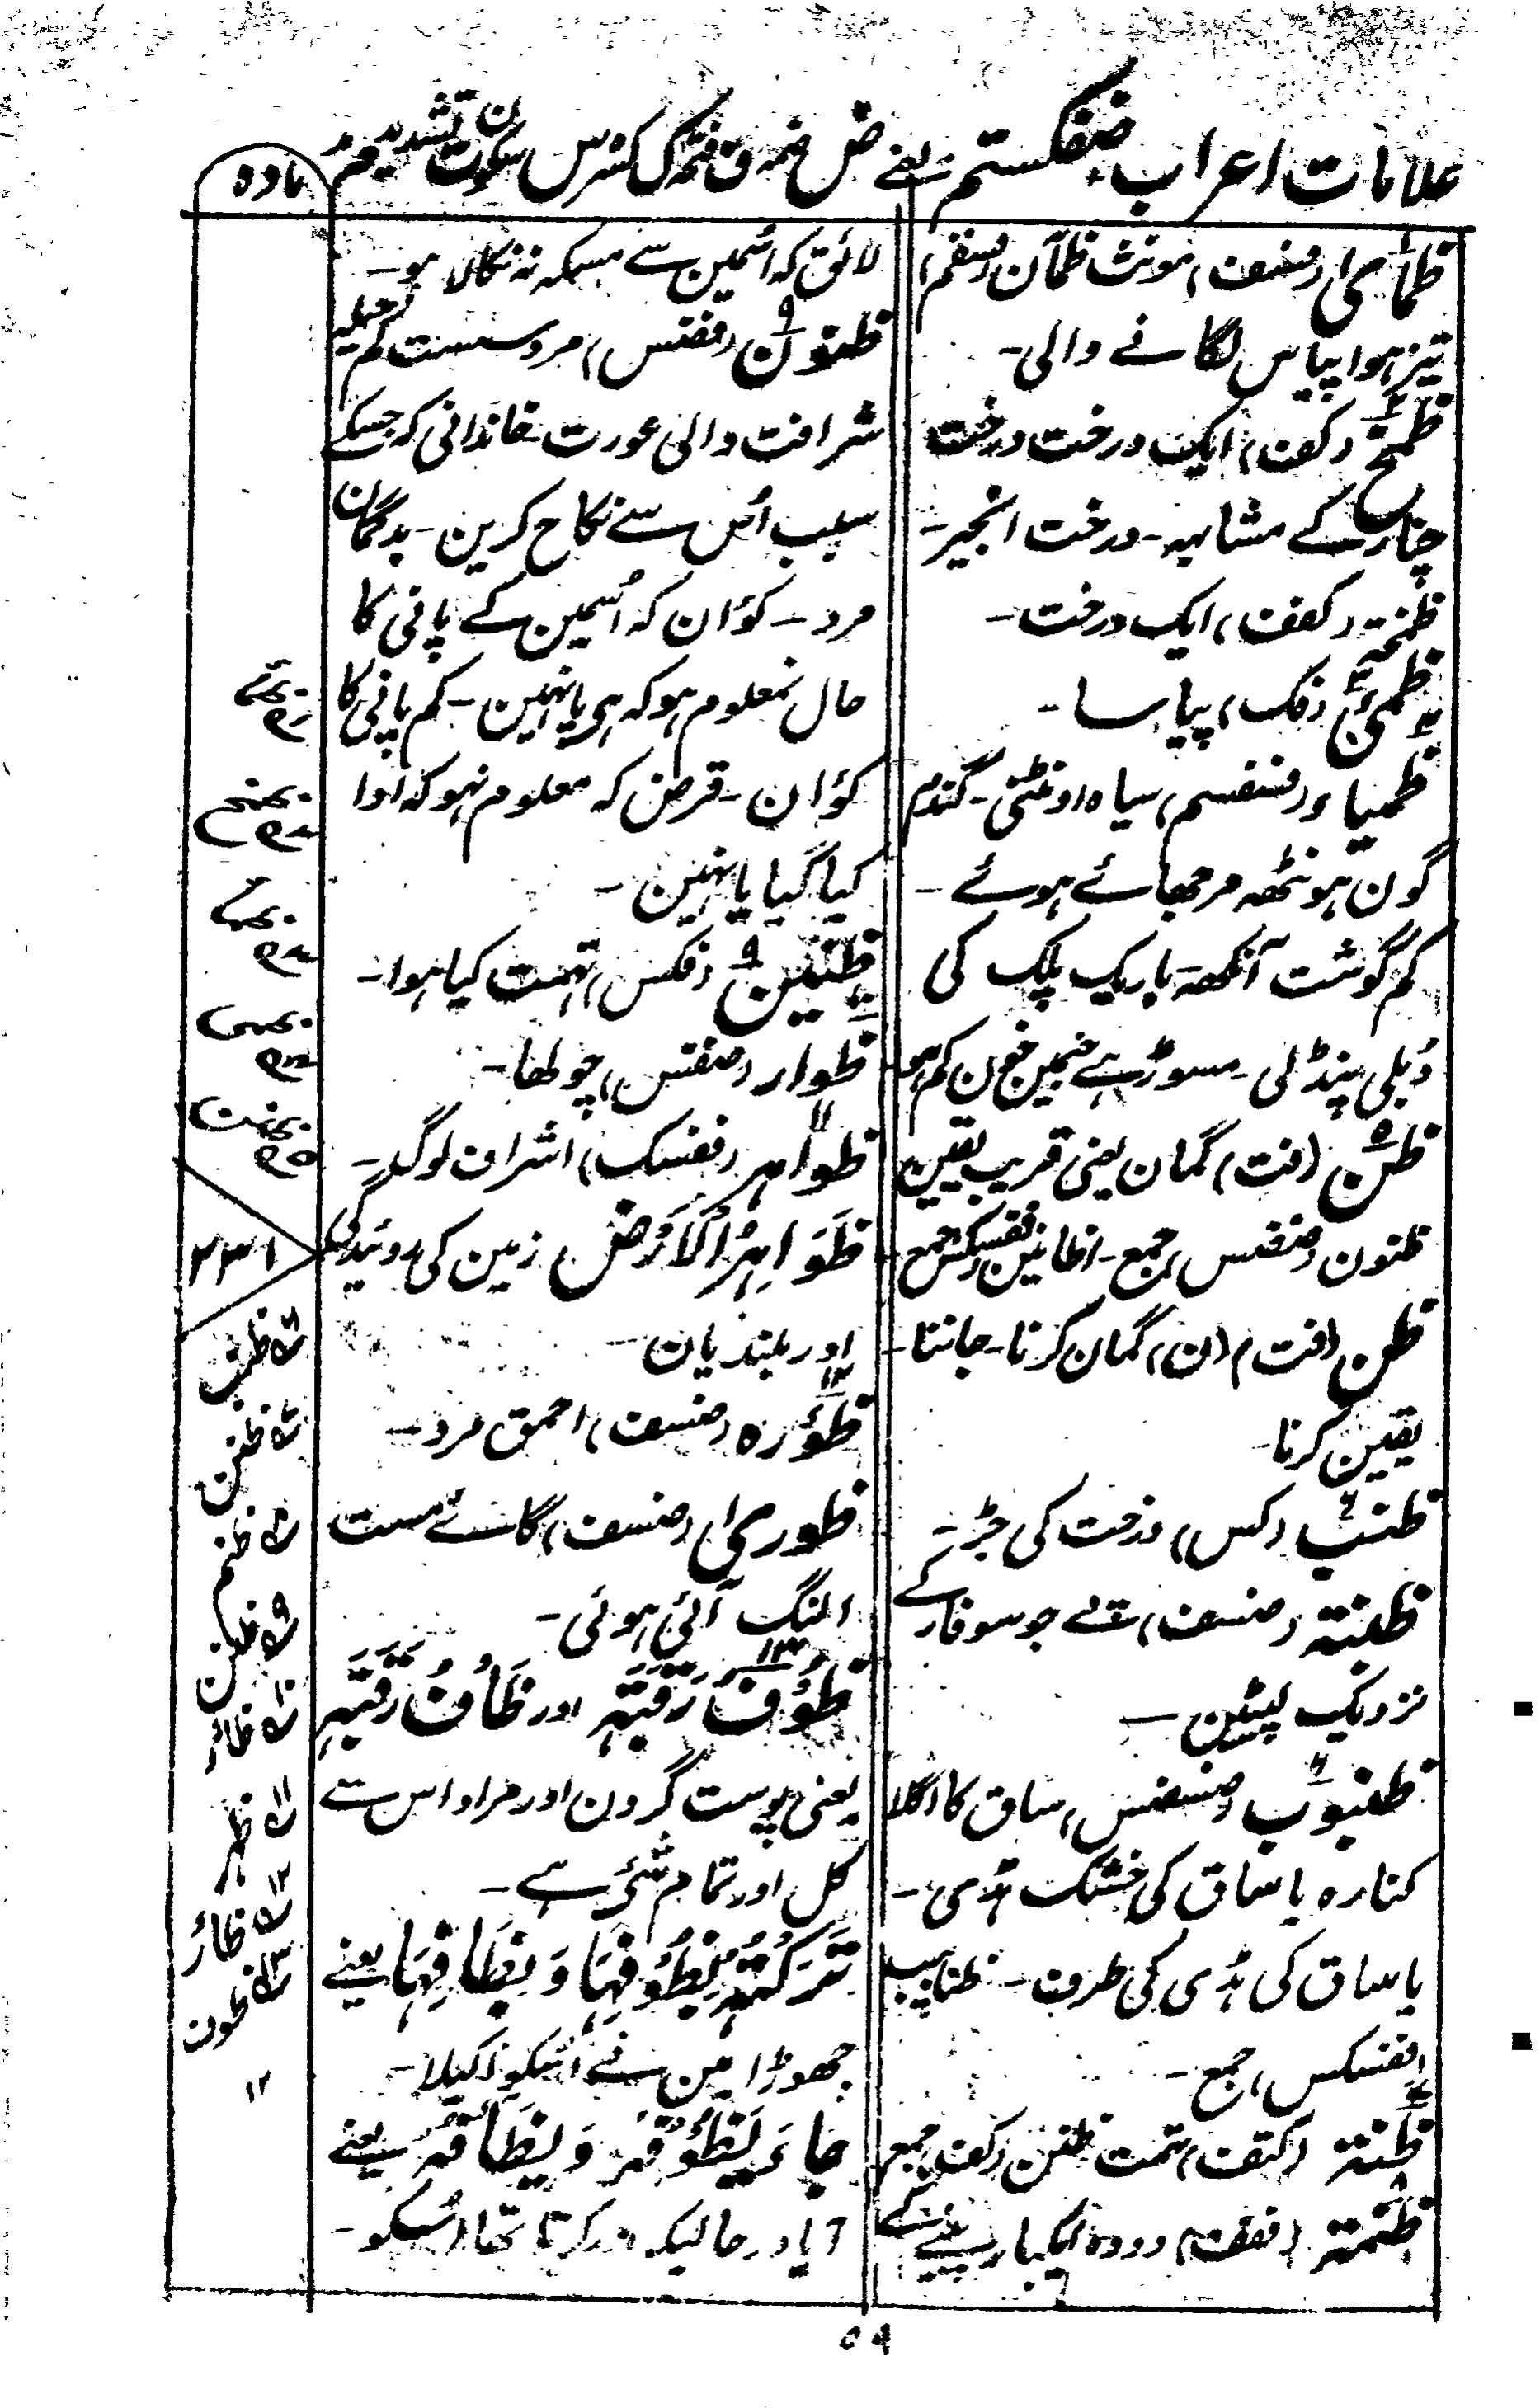 علامات اعراب ضفکستم یعنے ض ضمہ ف فتحہ ک کسر س سکون ت تشدید م مد
مادہ
ظمأی (فسف) مونث ظمآن (فسفم)
تیز ہوا پیاس لگانے والی۔
ظمخ (کف) ایک درخت درخت
چنار کے مشابہ۔ درخت انجیر۔
ظمخة (کفف) ایک درخت۔
ظمئ (فک) پیاسا۔
ظمیاء (فسفسم) سیاہ اونٹنی۔ گندم
گون ہونٹھہ مرجھائے ہوئے۔
کم گوشت آنکھہ۔ باریک پلک کی
دُبلی پنڈلی۔ مسوڑہے جنمین خون کم ہو۔
ظن (فت) گمان یعنی قریب یقین
ظنون (ضفس) جمع۔ اظانین (ففسکس) جمع
ظن (فت) م (ن) گمان کرنا۔ جاننا۔
یقین کرنا۔
ظنب (کس) درخت کی جڑ۔
ظنبة (ضسف) تے جو سوفار کے
نزدیک لپیٹن۔
ظنبوب (ضسضس) ساق کا اگلا
کنارہ یا ساق کی خشک ہڈی۔
یا ساق کی ہڈی کی طرف۔ ظنابیب
(ففسکس) جمع۔
ظنة (کتف) تہمت ظنن (کف) جمع
ظنمة (ففف) دودہ ایکبار پینے کے
لائق کہ اُسمین سے مسکہ نہ نکالا ہو۔
ظنون (فضس) مرد سست کم حیلہ
شرافت والی عورت خاندانی کہ جسکے
سبب اُس سے نکاح کرین۔ بدگمان
مرد۔ کوٗان کہ اُسمین کے پانی کا
حال نمعلوم ہو کہ ہی یا نہین۔ کم پانی کا
کوٗان۔ قرض کہ معلوم نہو کہ ادا
کیا گیا یا نہین۔
ظنین (فکس) تہمت کیا ہوا۔
ظوار (ضفس) چولھا۔
ظواہر (ففسک) اشراف لوگ۔
ظَوَاہِرُ الْاَرْضِ زمین کی روئیدگی
اور بلندیان۔
ظؤرہ (ضسف) احمق مرد۔
ظوری (ضسف) گائے مست
النگ آئی ہوئی۔
ظُوْفُ رَقَبَتِہٖ اور ظَأفُ رَقَبَتِہٖ
یعنی پوست گردن اور مراد اس سے
کل اور تمام شئ ہے۔
تَرَکْتُہٗ بِظُوْفِہَا وَ بِظَافِہَا یعنے
چھوڑا مین نے اُسکو اکیلا۔
جاءَ یَظُؤفُہٗ وَ یَظَأفُہٗ یعنے
آیا در حالیکہ کرتا تھا اُسکو۔
۲۳۱
۵ ظن
۵ ظنن
۵ ظنم
۹ ظنن
۱۰ ظائر
۱۱ ظہر
۱۲ ظائر
۱۳ ظوف
۱۲
۵۹